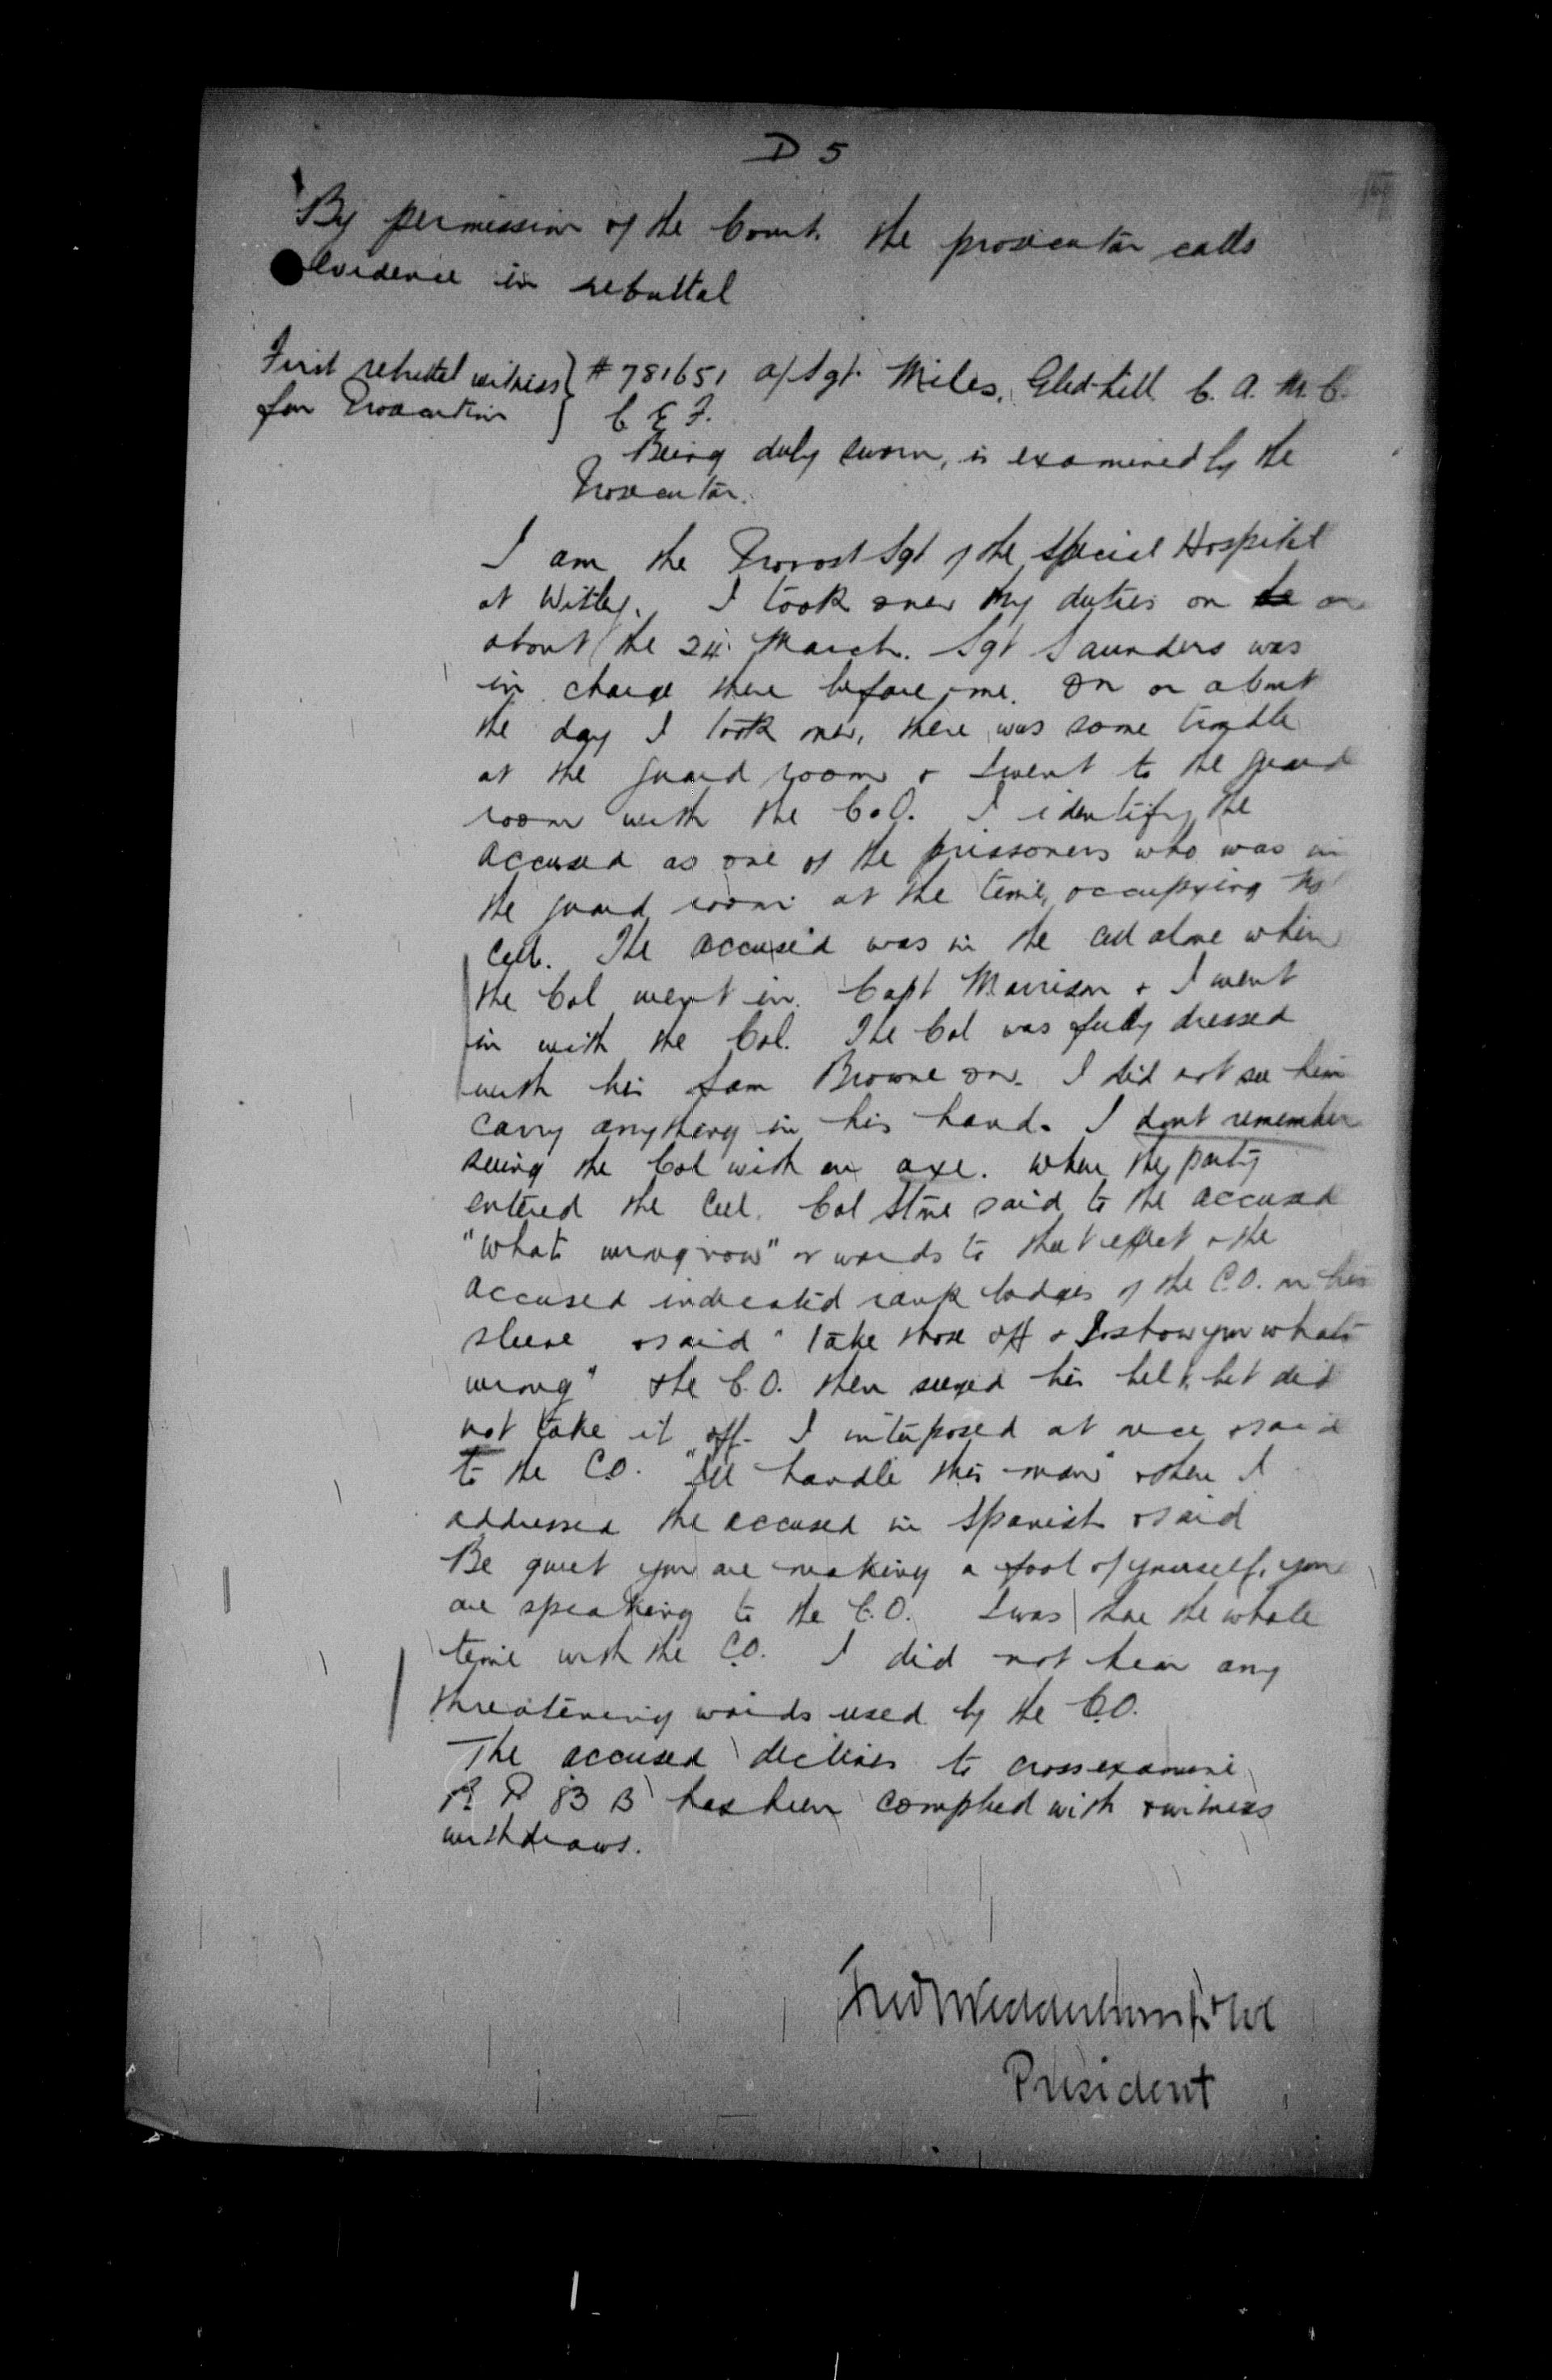 D 5
By permission of the Court the prosecutor calls
evidence in rebuttal
First rebuttal witness } # 781651 a/Sgt. Miles, Gledhill C. A. M. C.
for Prosecution } C E F.
Being duly sworn, is examined by the
Prosecutor.
I am the Provost Sgt of the Special Hospital
at Witley. I took over my duties on or
about the 24 March. Sgt Saunders was
in charge there before me. On or about
the day I took over, there was some trouble
at the guard room & I went to the guard
room with the C.O. I identify the
accused as one of the prissoners who was in
the guard room at the time, occupying
Cell. The accused was in the cell alone when
the Col went in. Capt Morrison & I went
in with the Col. The Col was fully dressed
with his Sam Browne on. I did not see him
carry anything in his hand. I dont remember
seeing the Col with an axe. When the party
entered the Cell. Col Stone said to the accused
"Whats wrong now" or words to that effect & the
accused indicated rank badges of the C.O. on his
sleeve & said "Take those off & I'll show you whats
wrong" & the C.O. then seized his belt but did
not take it off. I interposed at once & said
to the C.O. "Ill handle this man" & then I
addressed the accused in Spanish & said
Be quiet you are making a fool of yourself, you
are speaking to the C.O. I was there the whole
time with the C.O. I did not hear any
threatening words used by the C.O.
The accused declines to cross examine
R. P. 83 B has been complied with & witness
withdraws.
President